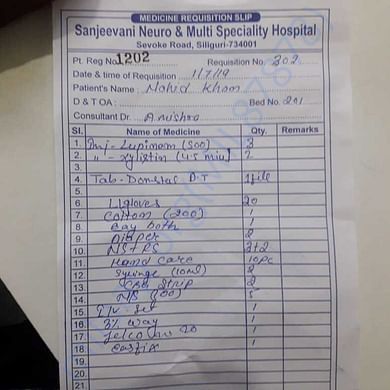 MEDICINE REQUISITION SLIP
Sanjeevani Neuro & Multi Speciality Hospital
Sevoke Road, Siliguri-734001
Pt. Reg No. 1202 Requisition No. 302
Date & time of Requisition 11/7/19
Patient's Name : Mohid Khan
D & TOA : Bed No. 201
Consultant Dr. A Mishra
Sl. Name of Medicine Qty. Remarks
1. Inj- Lupimem (500) 3
2. " - xylistin (45 miu) 2
3.
4. Tab- Domstal D.T 1
5.
6. Gloves 20
7. Cotton (200) 1
8. 1
9. Diaper 2
10. NS+RS 3+2
11. Hand Care 10pc
12. Syringe (10ml) 2
13. Strip 2
14. N/S (100) 5
15. set 1
16. 3 way 1
17. Jelco no 20 1
18. 1
19.
20.
21.